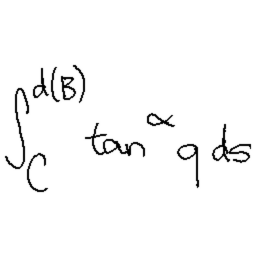 ∫_C^{d(B)} tan^α q ds